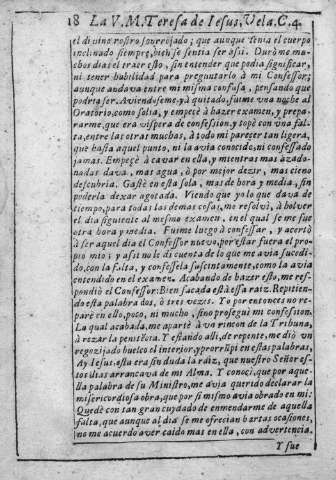 18 La V. M. Teresa de Iesus, Vela, C. 4.
el divino rostro sonrojado; que aunque tenia el cuerpo
inclinado siempre, bien se sentia ser assi. Duròme mu-
chos dias el traer esto, sin entender que podia significar,
ni tener habilidad para preguntarlo à mi Confessor;
aunque andava entre mi misma confusa, pensando que
podria ser. Aviendoseme yà quitado, fuime vna noche al
Oratorio, como solia, y empecè à hazer examen, y prepa-
rarme, que era vispera de confession, y topè con vna fal-
ta, entre las otras muchas, à todo mi parecer tan ligera,
que hasta aquel punto, ni la avia conocido, ni confessado
jamas. Empecè à cavar en ella, y mientras mas azado-
nadas dava, mas agua, ò por mejor dezir, mas cieno
descubria. Gastè en esta sola, mas de hora y media, sin
poderla dexar agotada. Viendo que yo lo que dava de
tiempo, para todas las demas cosas, me resolvi, à bolver
el dia siguiente al mesmo examen, en el qual se me fue
otra hora y media. Fuime luego à confessar, y acertò
à ser aquel dia el Confessor nuevo, por estar fuera el pro-
pio mio; y assi no le di cuenta de lo que me avia sucedi-
do, con la falta, y confessela sucintamente, como la avia
entendido en el examen. Acabando de hazer esto, me res-
pondiò el Confessor: Bien sacada està essa raiz. Repitien-
do esta palabra dos, ò tres vezes. Yo por entonces no re-
parè en ello, poco, ni mucho, sino prosegui mi confession.
La qual acabada, me apartè à vn rincon de la Tribuna,
à rezar la penitencia. Y estando alli, de repente, me diò vn
regozijado buelco el interior, y prorrumpi en estas palabras,
Ay Iesus, esta era sin duda la raiz, que nuestro Señor es-
tos dias arrancava de mi Alma. Y conoci, que por aque-
lla palabra de su Ministro, me avia querido declarar la
misericordiosa obra, que por si mismo avia obrado en mi:
Quedè con tan gran cuydado de enmendarme de aquella
falta, que aunque al dia se me ofrecian hartas ocasiones,
no me acuerdo aver caido mas en ella, con advertencia.
Y fue